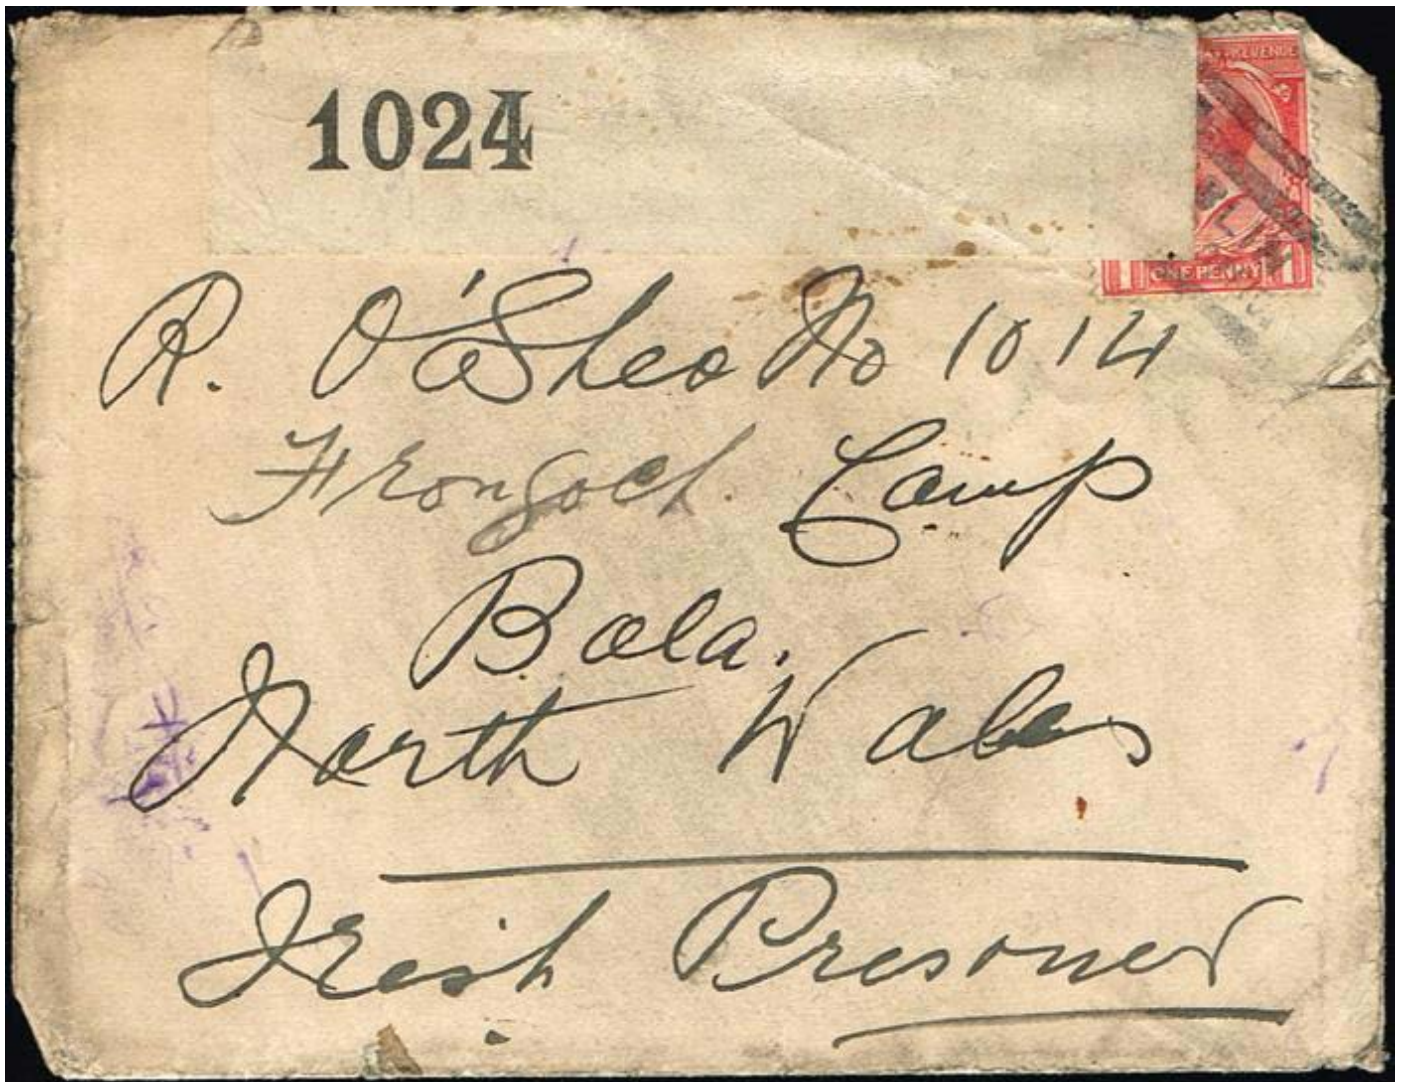 1024
REVENUE
1 ONE PENNY 1
R. O'Shea No 1014
Frongoch Camp
Bala.
North Wales
Irish Prisoner